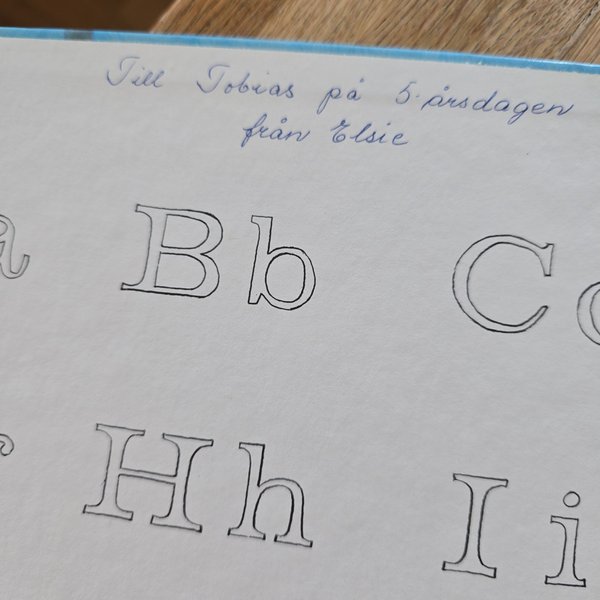 Till Tobias på 5-årsdagen
från Elsie
a Bb Cc
Hh Ii